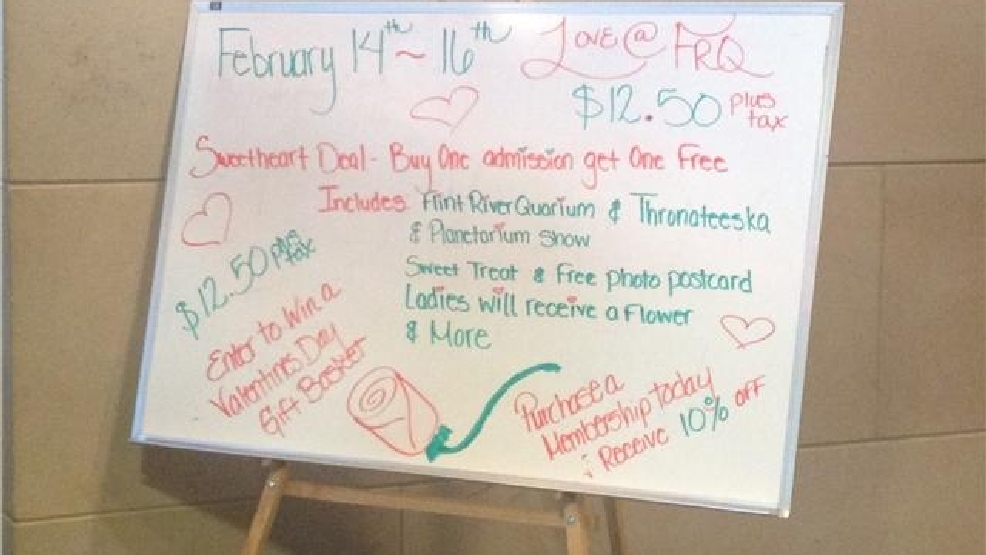 February 14th ~ 16th Love @ FRQ
$12.50 plus tax
Sweetheart Deal - Buy One admission get One Free
Includes: Flint RiverQuarium & Thronateeska
& Planetarium Show
Sweet Treat & Free photo postcard
Ladies will receive a Flower
& More
$12.50 plus tax
Enter to Win a
Valentines Day
Gift Basket
Purchase a
Membership today
& Receive 10% OFF